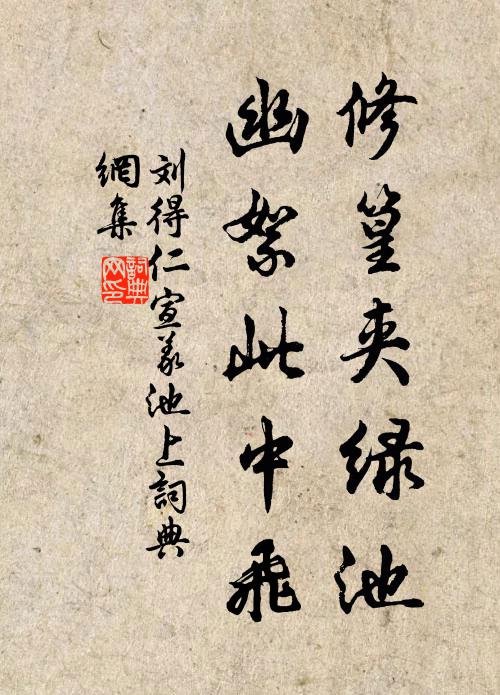 修篁夹绿池
幽絮此中飛
刘得仁宣義池上詞典
網集
詞典網印